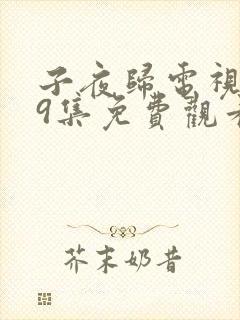 子夜歸電視
9集免費觀看
芥末奶昔